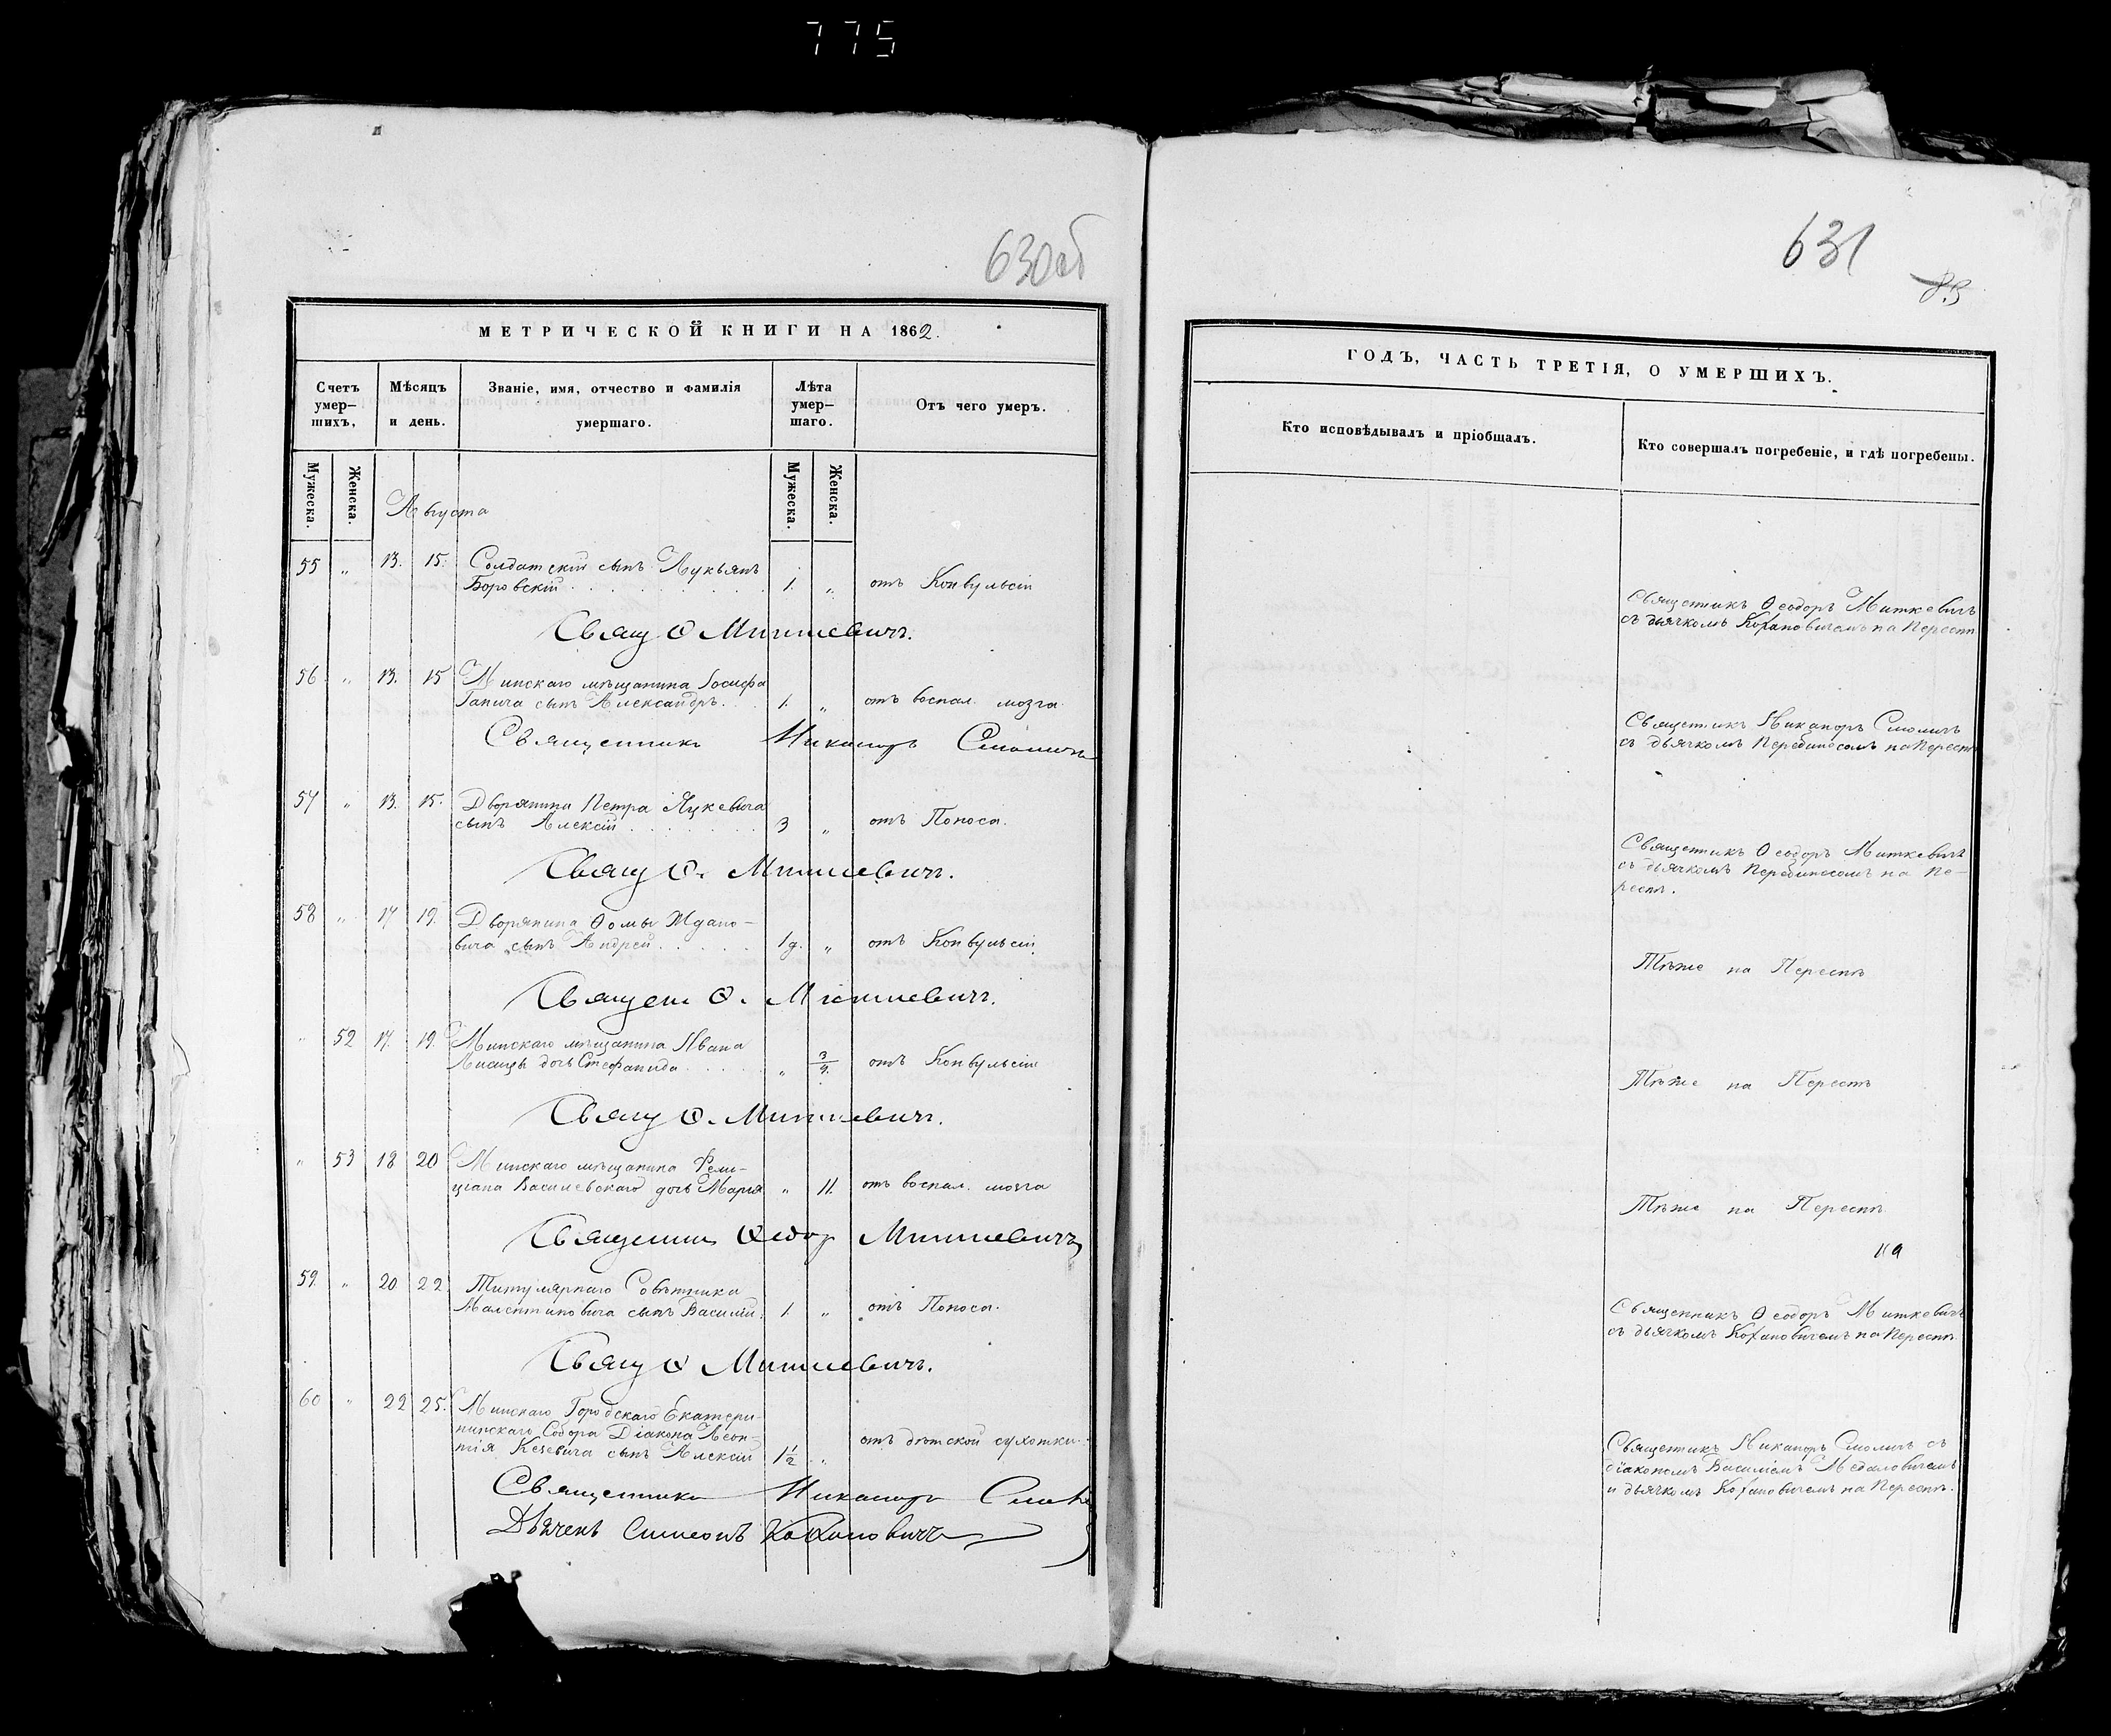 775
630об
МЕТРИЧЕСКОЙ КНИГИ НА 1862.
Счетъ умер-шихъ,
Мѣсяцъ и день.
Званіе, имя, отчество и фамилія умершаго.
Лѣта умер-шаго.
Отъ чего умеръ.
Мужеска.
Женска.
Мужеска.
Женска.
Августа
55 „ 13. 15. Солдатскій сынъ Лукьянъ
Боровскій . . . 1. „ отъ Конвульсіи
Свящ Ѳ Миткевичъ.
56 „ 13. 15 Минскаго мѣщанина Іосифа
Ганича сынъ Александръ. . 1. „ отъ воспал. мозга.
Священникъ Никаноръ Смоличъ
57 „ 13. 15. Дворянина Петра Яцкевича
сынъ Алексій . . . 3 „ отъ Поноса.
Свящ Ѳ. Миткевичъ.
58 „ 17 19. Дворянина Ѳомы Ждано-
вича сынъ Андрей . . . 1 д. „ отъ Конвульсіи.
Священ Ѳ. Миткевичъ.
„ 52 17. 19. Минскаго мѣщанина Ивана
Лисицы дочь Стефанида . . . „ 3/4. отъ Конвульсіи
Свящ Ѳ. Миткевичъ.
„ 53 18 20 Минскаго мѣщанина Фели-
ціана Василевскаго дочь Марія „ 11. отъ воспал. мозга
Священникъ Ѳедор Миткевичъ
59. „ 20 22 Титулярнаго Совѣтника
Малентиновича сынъ Василій. 1. „ отъ Поноса.
Свящ Ѳ Миткевичъ.
60 „ 22 25. Минскаго Городскаго Екатери-
нинскаго Собора Діакона Леон-
тія Кезевича сынъ Алексій 1 1/2 „ отъ дѣтской сухотки.
Священникъ Никаноръ
Дьячекъ Симеонъ Кохановичъ
631
ГОДЪ, ЧАСТЬ ТРЕТІЯ, О УМЕРШИХЪ.
Кто исповѣдывалъ и пріобщалъ.
Кто совершалъ погребеніе, и гдѣ погребены.
Священникъ Ѳеодоръ Миткевичъ
съ дьячкомъ Кохановичемъ на Переспѣ
Священникъ Никаноръ Смоличъ
съ дьячкомъ на Переспѣ
Священникъ Ѳеодоръ Миткевичъ
съ дьячкомъ на Пе-
респѣ.
Тѣже на Переспѣ
Тѣже на Переспѣ
Тѣже на Переспѣ
на
Священникъ Ѳеодоръ Миткевичъ
съ дьячкомъ Кохановичемъ на Переспѣ.
Священникъ Никаноръ Смоличъ съ
діакономъ Василіемъ
и дьячкомъ Кохановичемъ на Переспѣ.